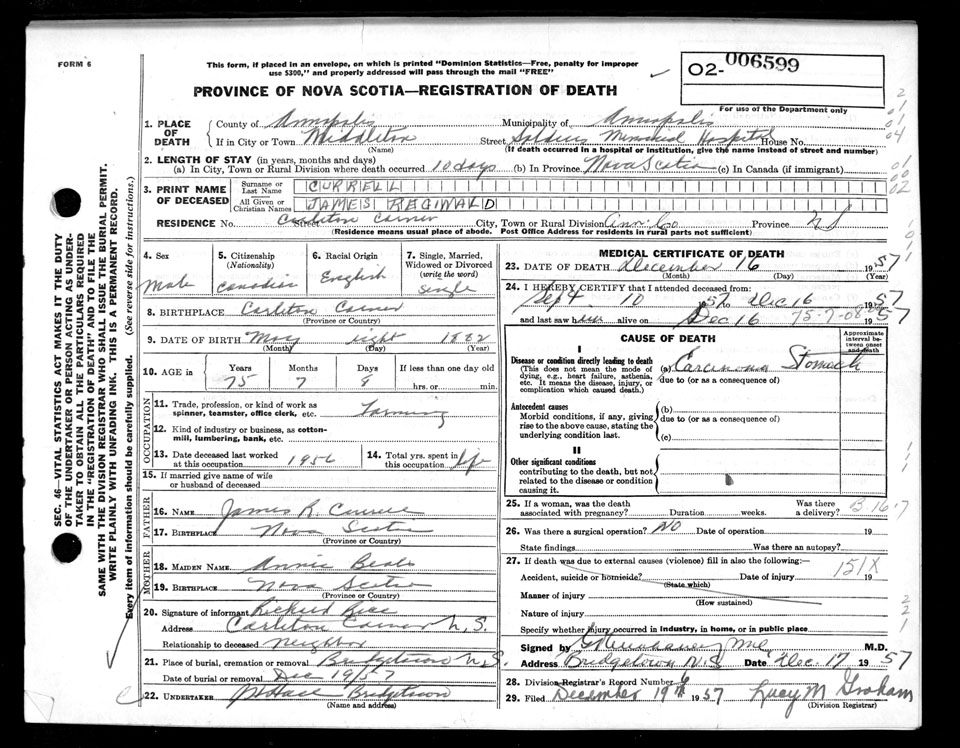 FORM 6
This form, if placed in an envelope, on which is printed "Dominion Statistics—Free, penalty for improper
use $300," and properly addressed will pass through the mail "FREE"
02-006599
For use of the Department only
PROVINCE OF NOVA SCOTIA—REGISTRATION OF DEATH
1. PLACE OF DEATH
County of Annapolis Municipality of Annapolis
If in City or Town Middleton Street Soldiers Memorial Hospital House No.
(Name) (If death occurred in a hospital or institution, give the name instead of street and number)
2. LENGTH OF STAY (in years, months and days)
(a) In City, Town or Rural Division where death occurred 10 days (b) In Province Nova Scotia (c) In Canada (if immigrant)
3. PRINT NAME OF DECEASED
Surname or Last Name CURRELL
All Given or Christian Names JAMES REGINALD
RESIDENCE No. Street Carleton Corner City, Town or Rural Division Ann: Co Province N S
(Residence means usual place of abode. Post Office Address for residents in rural parts not sufficient)
4. Sex Male
5. Citizenship (Nationality) Canadian
6. Racial Origin English
7. Single, Married, Widowed or Divorced (write the word) Single
8. BIRTHPLACE Carleton Corner
(Province or Country)
9. DATE OF BIRTH May eight 1882
(Month) (Day) (Year)
10. AGE in Years Months Days If less than one day old
75 7 8 hrs. or min.
OCCUPATION
11. Trade, profession, or kind of work as spinner, teamster, office clerk, etc. Farming
12. Kind of industry or business, as cotton-mill, lumbering, bank, etc.
13. Date deceased last worked at this occupation 1956
14. Total yrs. spent in this occupation life
15. If married give name of wife or husband of deceased
FATHER
16. NAME James R. Currell
17. BIRTHPLACE Nova Scotia
(Province or Country)
MOTHER
18. MAIDEN NAME Annie Beals
19. BIRTHPLACE Nova Scotia
(Province or Country)
20. Signature of informant Rickerd Rice
Address Carleton Corner N.S.
Relationship to deceased Neighbor
21. Place of burial, cremation or removal Bridgetown N.S.
Date of burial or removal Dec 19/57
22. UNDERTAKER Bridgetown
(Name and address)
MEDICAL CERTIFICATE OF DEATH
23. DATE OF DEATH December 16 1957
(Month) (Day) (Year)
24. I HEREBY CERTIFY that I attended deceased from:
Sept 10 1957 to Dec 16 1957
and last saw him alive on Dec 16 1957
75-7-08
CAUSE OF DEATH
Approximate interval between onset and death
I
Disease or condition directly leading to death
(This does not mean the mode of dying, e.g., heart failure, asthenia, etc. It means the disease, injury, or complication which caused death.)
(a) Carcinoma Stomach
due to (or as a consequence of)
Antecedent causes
Morbid conditions, if any, giving rise to the above cause, stating the underlying condition last.
(b)
due to (or as a consequence of)
(c)
II
Other significant conditions
contributing to the death, but not related to the disease or condition causing it.
25. If a woman, was the death associated with pregnancy? Duration weeks. Was there a delivery?
B 16.7
26. Was there a surgical operation? NO Date of operation 19
State findings Was there an autopsy?
27. If death was due to external causes (violence) fill in also the following:—
151X
Accident, suicide or homicide? Date of injury 19
(State which)
Manner of injury
(How sustained)
Nature of injury
Specify whether injury occurred in industry, in home, or in public place
Signed by M.D.
Address Bridgetown N.S. Date Dec. 17 1957
28. Division Registrar's Record Number 6
29. Filed December 19th 1957 Lucy M Graham
(Division Registrar)
SEC. 46—VITAL STATISTICS ACT MAKES IT THE DUTY
OF THE UNDERTAKER OR PERSON ACTING AS UNDER-
TAKER TO OBTAIN ALL THE PARTICULARS REQUIRED
IN THE "REGISTRATION OF DEATH" AND TO FILE THE
SAME WITH THE DIVISION REGISTRAR WHO SHALL ISSUE THE BURIAL PERMIT.
WRITE PLAINLY WITH UNFADING INK. THIS IS A PERMANENT RECORD.
Every item of information should be carefully supplied. (See reverse side for instructions.)